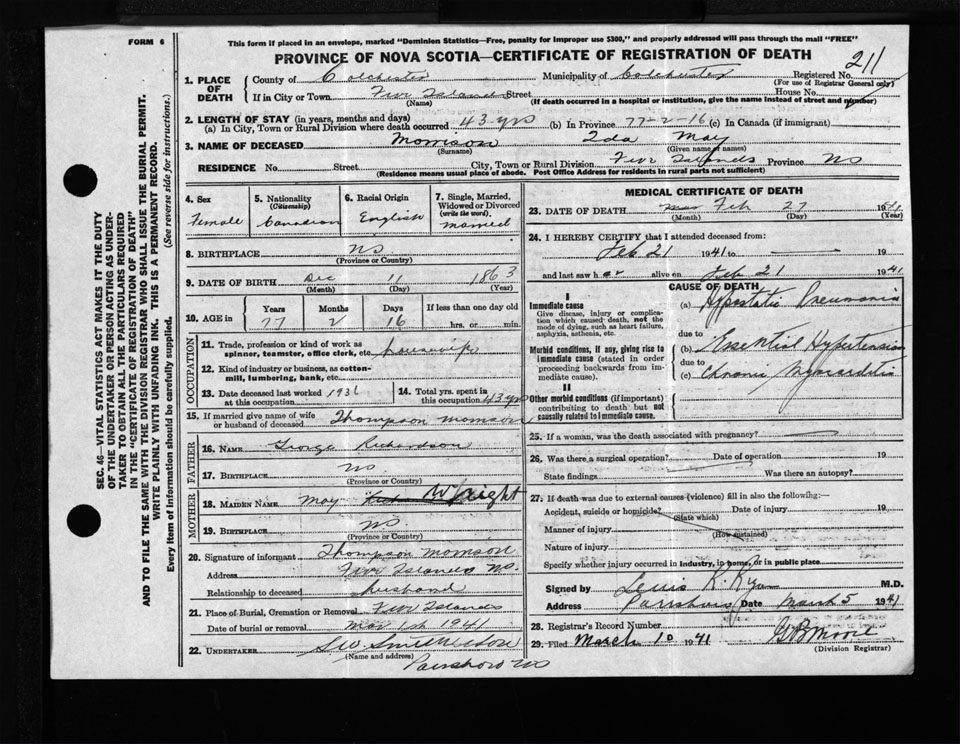 FORM 6
This form if placed in an envelope, marked "Dominion Statistics—Free, penalty for improper use $300," and properly addressed will pass through the mail "FREE"
PROVINCE OF NOVA SCOTIA—CERTIFICATE OF REGISTRATION OF DEATH
211
1. PLACE OF DEATH
County of Colchester Municipality of Colchester Registered No.
(For use of Registrar General only)
If in City or Town Five Islands Street House No.
(Name) (If death occurred in a hospital or institution, give the name instead of street and number)
2. LENGTH OF STAY (in years, months and days)
(a) In City, Town or Rural Division where death occurred 43 yrs (b) In Province 77-2-16 (c) In Canada (if immigrant)
3. NAME OF DECEASED Morrison Ida May
(Surname) (Given name or names)
RESIDENCE No. Street City, Town or Rural Division Five Islands Province NS
(Residence means usual place of abode. Post Office Address for residents in rural parts not sufficient)
4. Sex Female
5. Nationality (Citizenship) Canadian
6. Racial Origin English
7. Single, Married, Widowed or Divorced (write the word) married
8. BIRTHPLACE NS
(Province or Country)
9. DATE OF BIRTH Dec 11 1863
(Month) (Day) (Year)
10. AGE in Years Months Days If less than one day old
77 2 16 hrs. or min.
OCCUPATION
11. Trade, profession or kind of work as spinner, teamster, office clerk, etc. housewife
12. Kind of industry or business, as cotton-mill, lumbering, bank, etc.
13. Date deceased last worked at this occupation 1936
14. Total yrs. spent in this occupation 43 yrs
15. If married give name of wife or husband of deceased Thompson Morrison
FATHER
16. NAME George Richardson
17. BIRTHPLACE NS
(Province or Country)
MOTHER
18. MAIDEN NAME May Wright
19. BIRTHPLACE NS
(Province or Country)
20. Signature of informant Thompson Morrison
Address Five Islands NS.
Relationship to deceased husband
21. Place of Burial, Cremation or Removal Five Islands
Date of burial or removal Mar 1st 1941
22. UNDERTAKER
(Name and address)
Parrsboro NS
MEDICAL CERTIFICATE OF DEATH
23. DATE OF DEATH Feb 27 1941
(Month) (Day) (Year)
24. I HEREBY CERTIFY that I attended deceased from:
Feb 21 1941 to 19
and last saw her alive on Feb 21 1941
CAUSE OF DEATH
I
Immediate cause
Give disease, injury or complication which caused death, not the mode of dying, such as heart failure, asphyxia, asthenia, etc.
(a) Hypostatic Pneumonia
due to
Morbid conditions, if any, giving rise to immediate cause (stated in order proceeding backwards from immediate cause).
(b) Essential Hypertension
due to
(c) Chronic Myocarditis
II
Other morbid conditions (if important) contributing to death but not causally related to immediate cause.
25. If a woman, was the death associated with pregnancy?
26. Was there a surgical operation? Date of operation 19
State findings Was there an autopsy?
27. If death was due to external causes (violence) fill in also the following:—
Accident, suicide or homicide? Date of injury 19
(State which)
Manner of injury
(How sustained)
Nature of injury
Specify whether injury occurred in industry, in home, or in public place
Signed by Louis R. Ryan M.D.
Address Parrsboro Date March 5 1941
28. Registrar's Record Number
29. Filed March 10 1941
(Division Registrar)
SEC. 46—VITAL STATISTICS ACT MAKES IT THE DUTY
OF THE UNDERTAKER OR PERSON ACTING AS UNDER-
TAKER TO OBTAIN ALL THE PARTICULARS REQUIRED
IN THE "CERTIFICATE OF REGISTRATION OF DEATH"
AND TO FILE THE SAME WITH THE DIVISION REGISTRAR WHO SHALL ISSUE THE BURIAL PERMIT.
WRITE PLAINLY WITH UNFADING INK. THIS IS A PERMANENT RECORD.
Every item of information should be carefully supplied. (See reverse side for instructions.)